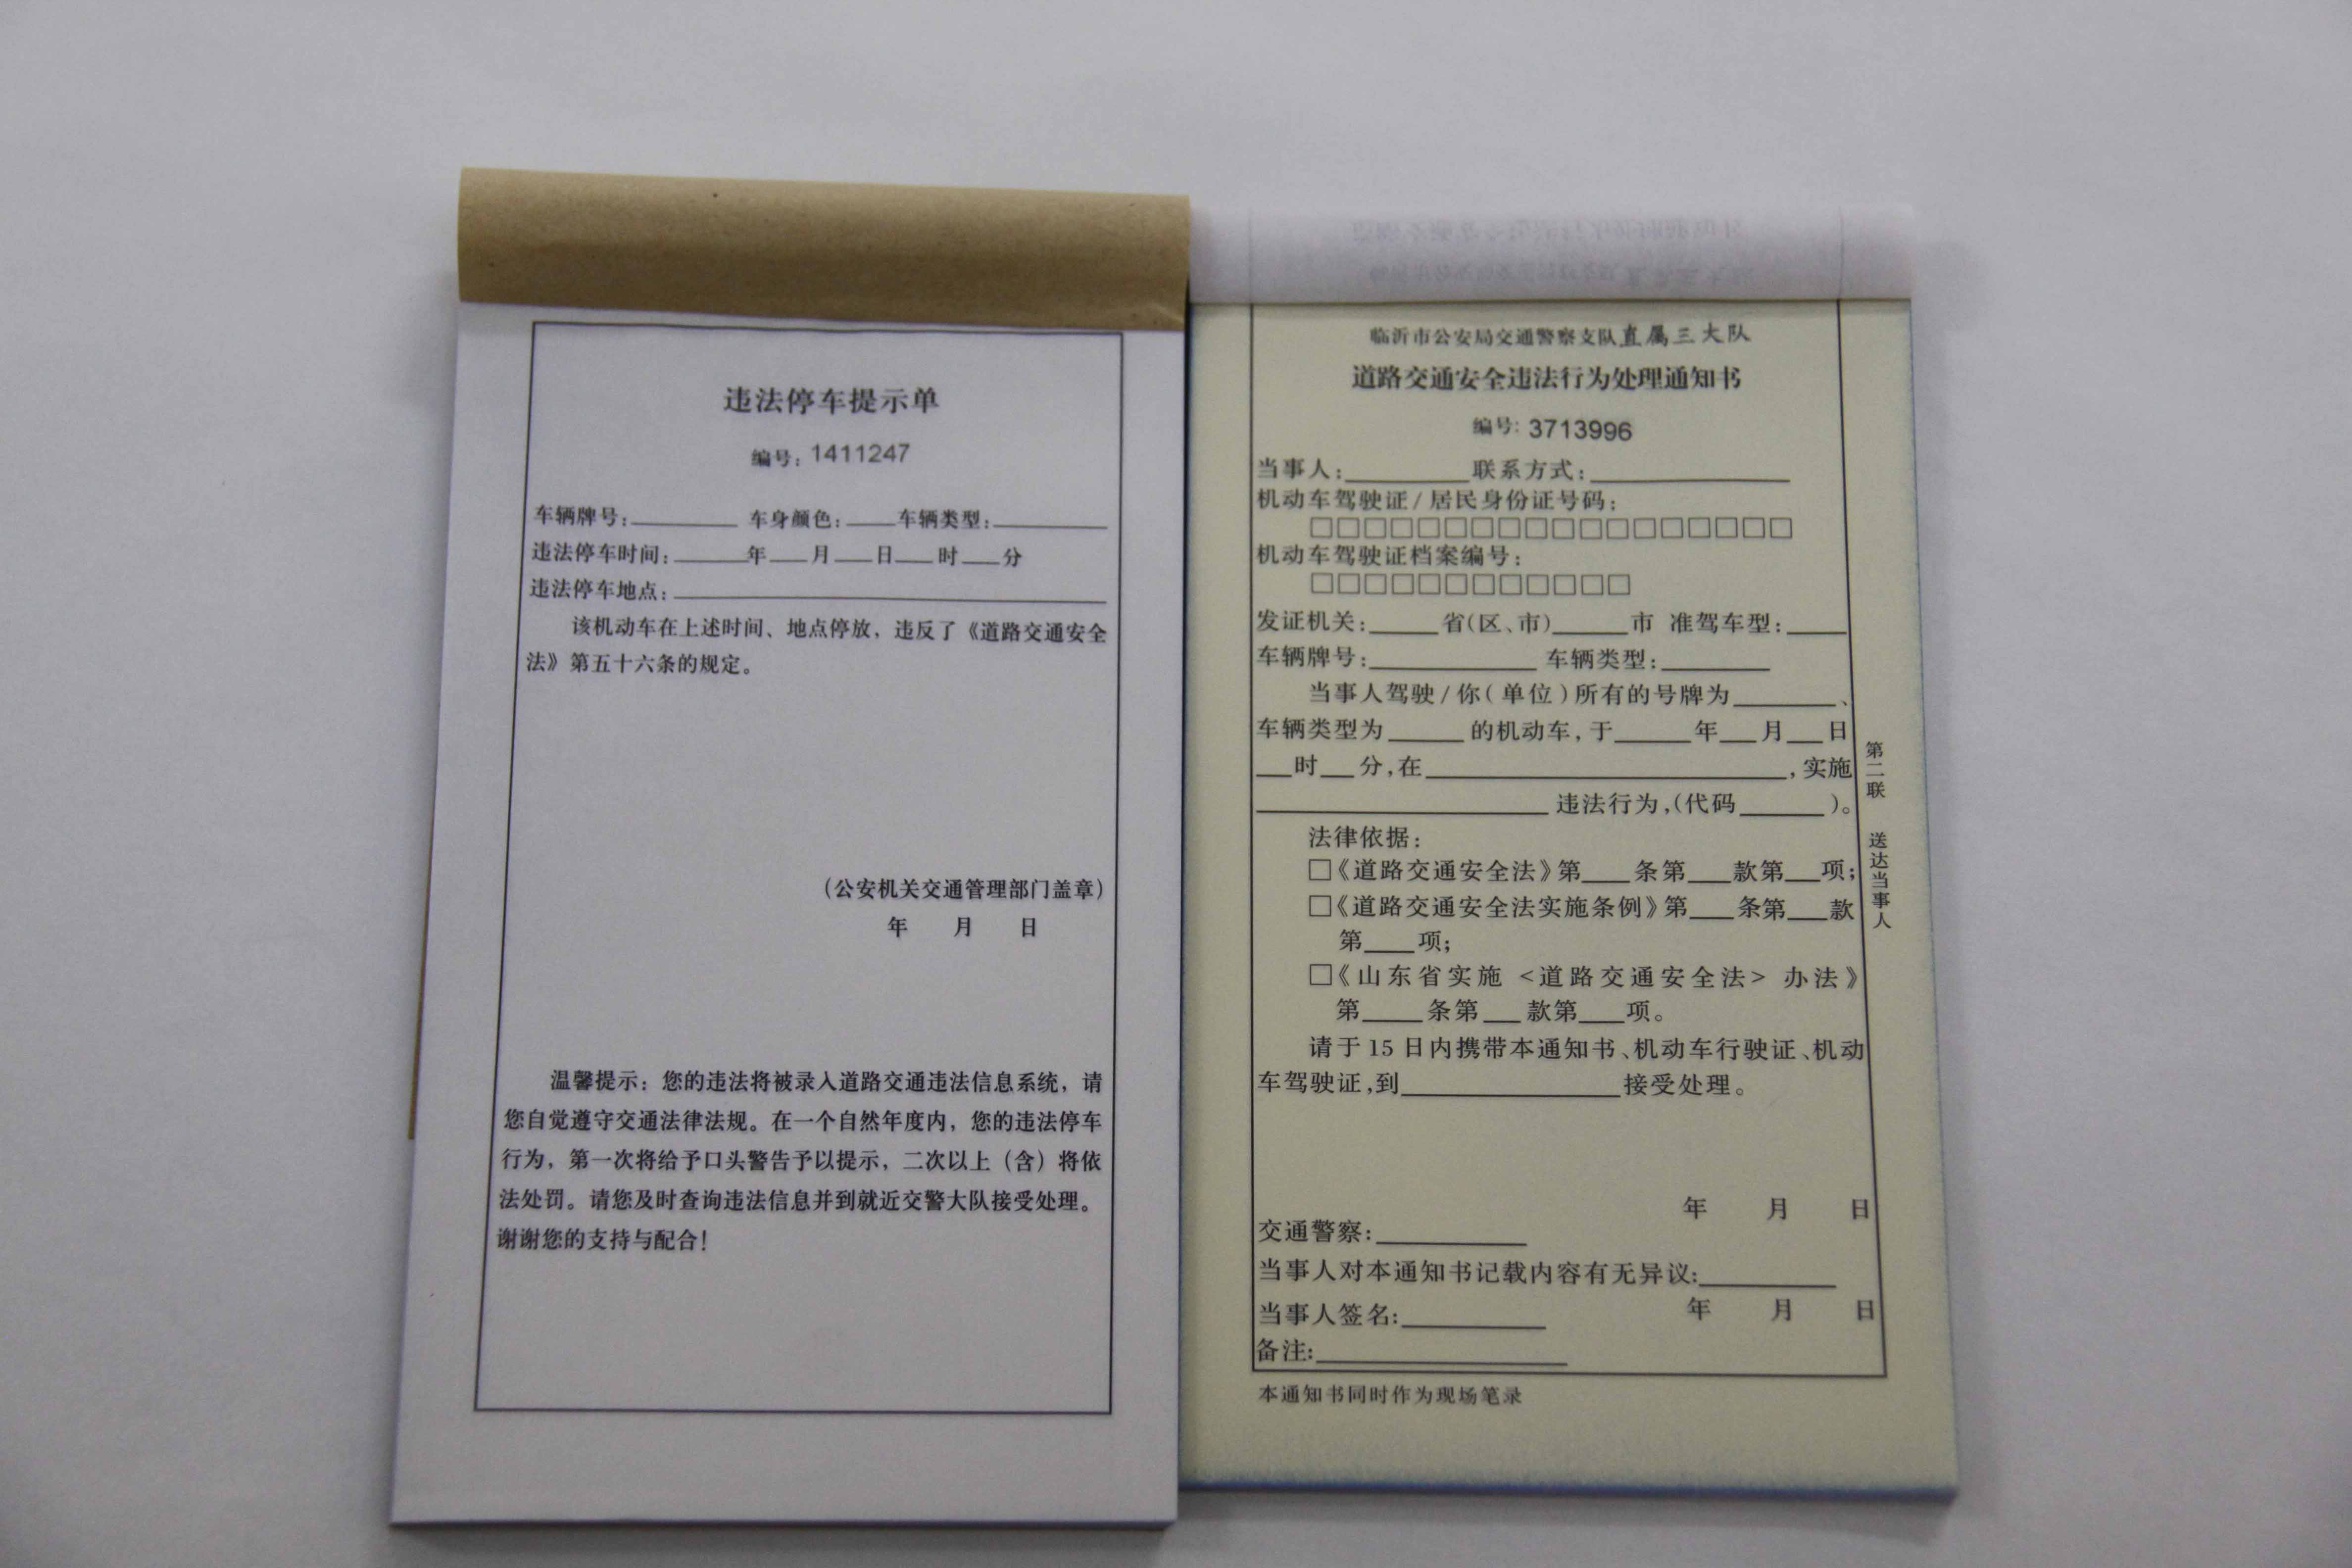 违法停车提示单
编号：1411247
车辆牌号：________ 车身颜色：____车辆类型：________
违法停车时间：______年___月___日___时___分
违法停车地点：________________
该机动车在上述时间、地点停放，违反了《道路交通安全
法》第五十六条的规定。
（公安机关交通管理部门盖章）
年 月 日
温馨提示：您的违法将被录入道路交通违法信息系统，请
您自觉遵守交通法律法规。在一个自然年度内，您的违法停车
行为，第一次将给予口头警告予以提示，二次以上（含）将依
法处罚。请您及时查询违法信息并到就近交警大队接受处理。
谢谢您的支持与配合！
临沂市公安局交通警察支队直属三大队
道路交通安全违法行为处理通知书
编号：3713996
当事人：________联系方式：____________
机动车驾驶证/居民身份证号码：
□□□□□□□□□□□□□□□□□□
机动车驾驶证档案编号：
□□□□□□□□□□□□
发证机关：_____省(区、市)_____市 准驾车型：____
车辆牌号：__________ 车辆类型：________
当事人驾驶/你(单位)所有的号牌为________、
车辆类型为_____的机动车，于_____年___月___日
___时___分，在______________________，实施
____________________违法行为，(代码______)。
法律依据：
□《道路交通安全法》第___条第___款第___项；
□《道路交通安全法实施条例》第___条第___款
第___项；
□《山东省实施<道路交通安全法>办法》
第____条第___款第___项。
请于15日内携带本通知书、机动车行驶证、机动
车驾驶证，到______________接受处理。
年 月 日
交通警察：__________
当事人对本通知书记载内容有无异议：_________
年 月 日
当事人签名：__________
备注：________________
本通知书同时作为现场笔录
第二联 送达当事人